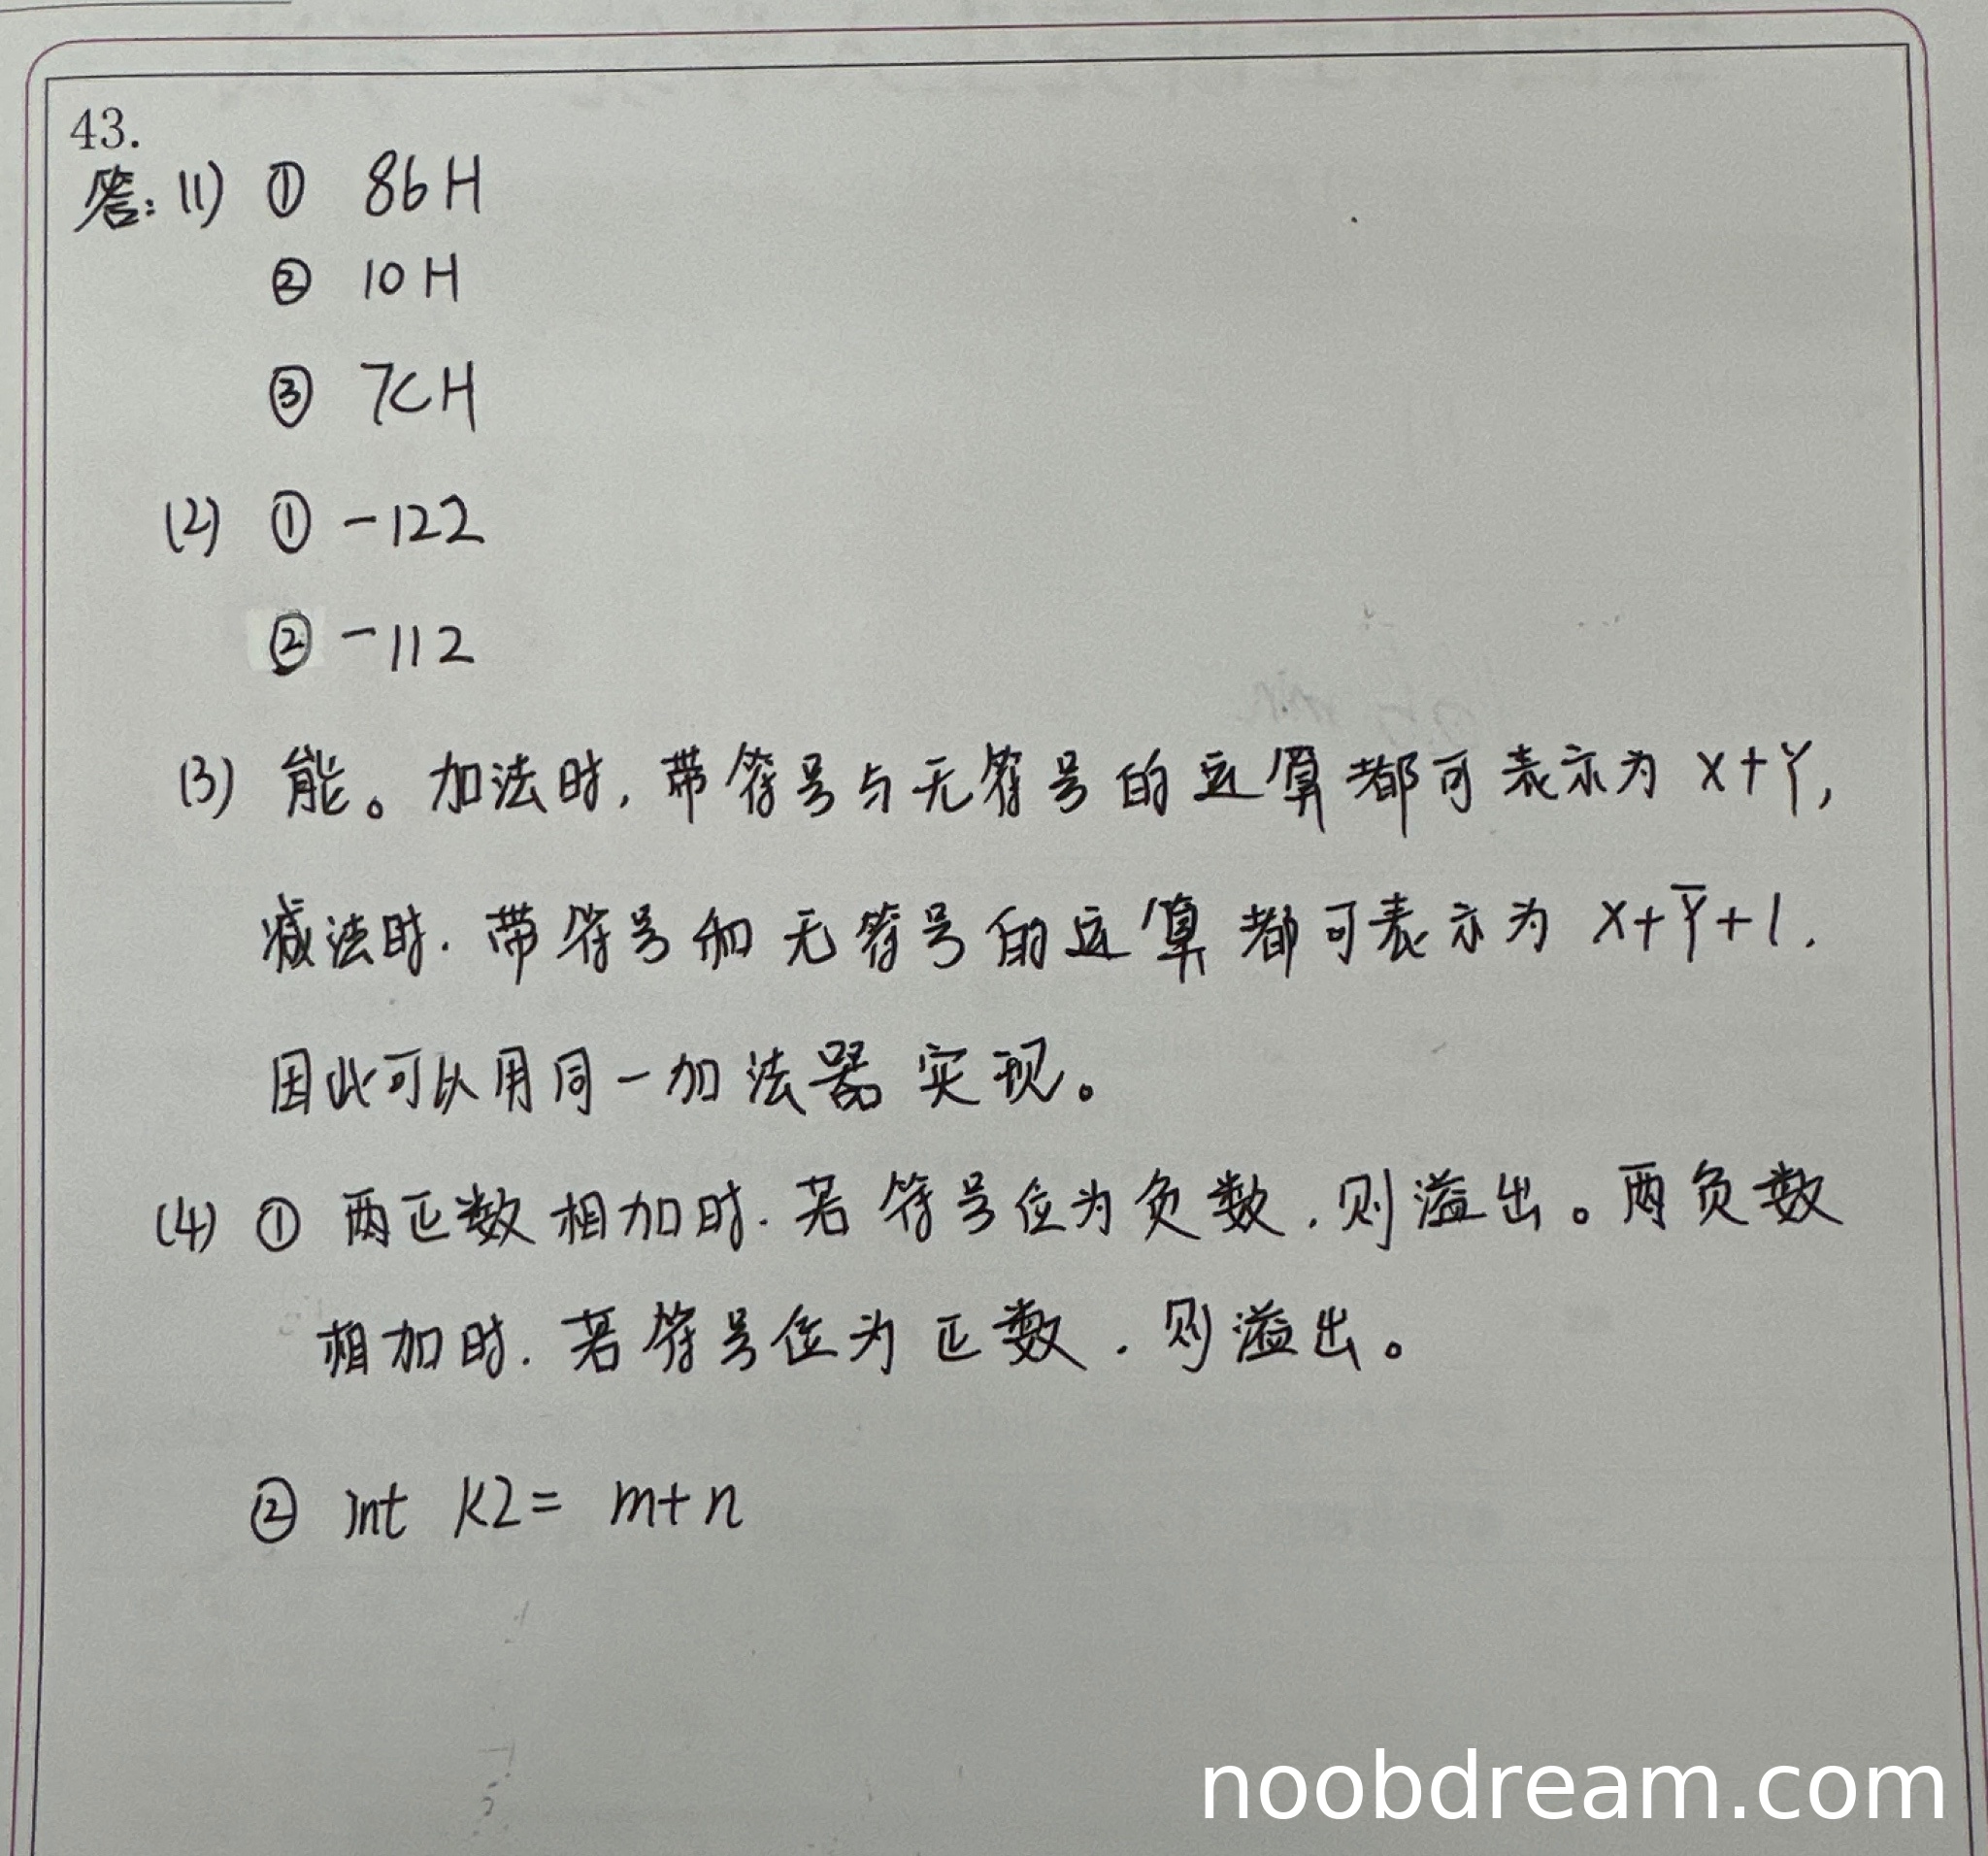 43.
答：(1) ① 86H
② 10H
③ 7CH
(2) ① -122
② -112
(3) 能。加法时，带符号与无符号的运算都可表示为 X+Y，
减法时，带符号和无符号的运算都可表示为 X+Y̅+1．
因此可以用同一加法器实现。
(4) ① 两正数相加时．若符号位为负数，则溢出。两负数
相加时．若符号位为正数．则溢出。
② int K2= m+n
noobdream.com